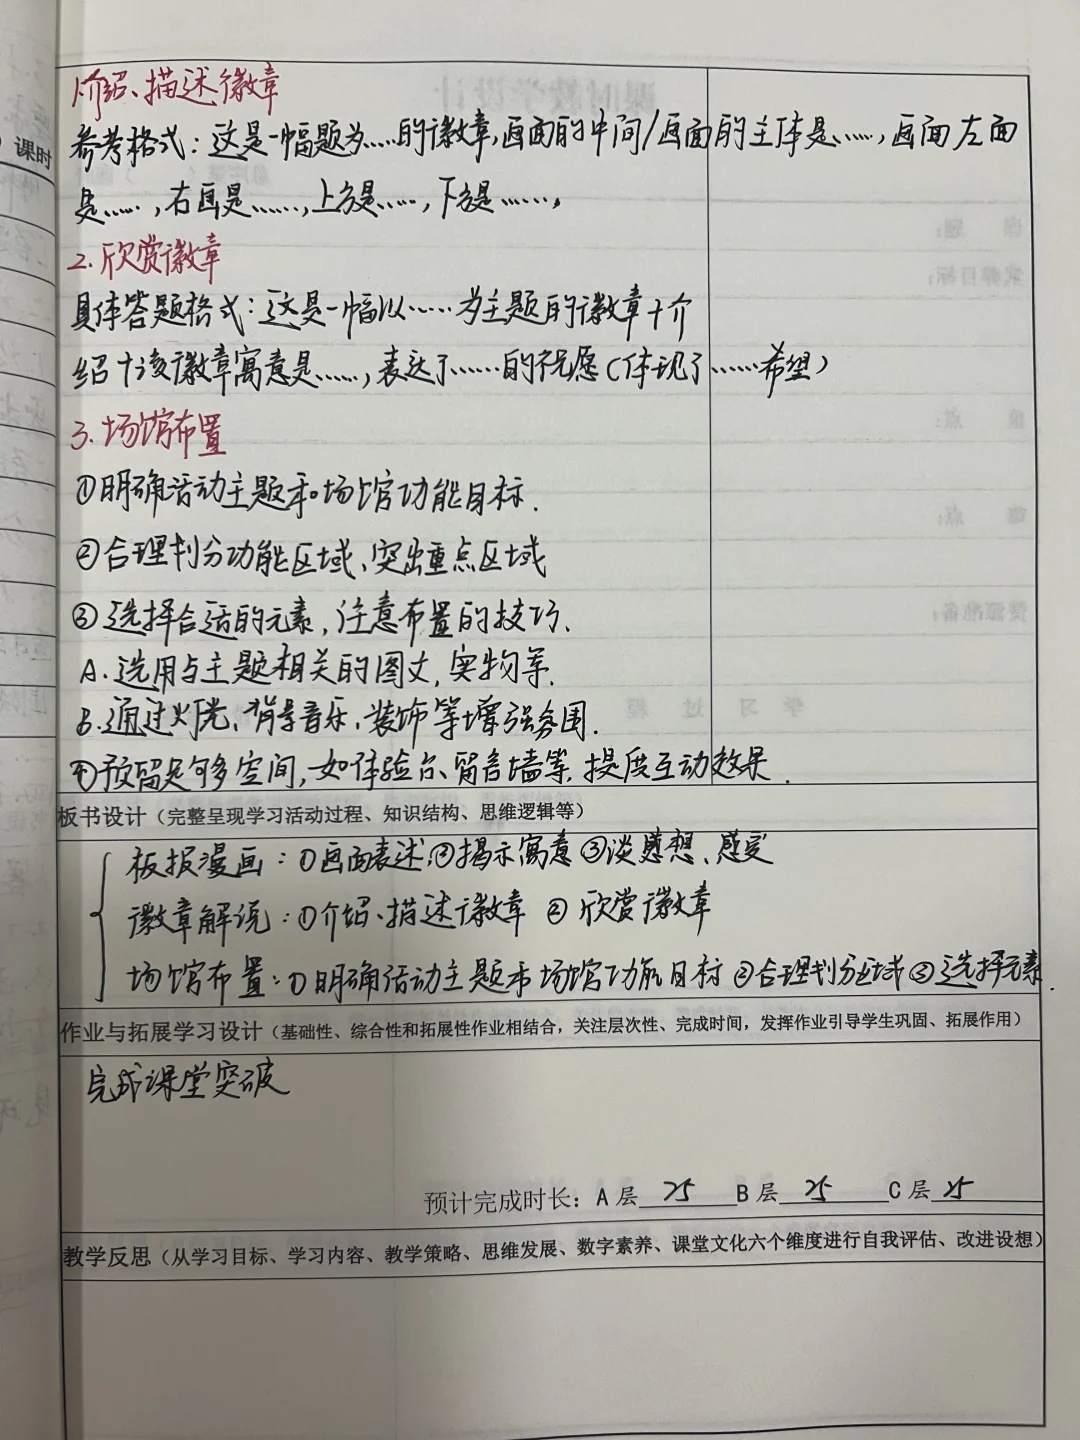 课时
1介绍、描述徽章
参考格式：这是一幅题为……的徽章,画面的中间/画面的主体是……，画面左面
是……，右画是……，上方是……，下方是……，
2.欣赏徽章
具体答题格式：这是一幅以……为主题的徽章+介
绍+该徽章寓意是……，表达了……的祝愿（体现了……希望）
3.场馆布置
①明确活动主题和场馆功能目标.
②合理划分功能区域、突出重点区域
③选择合适的元素，注意布置的技巧.
A.选用与主题相关的图文,实物等.
B.通过灯光、背景音乐、装饰等增强氛围.
④预留足够多空间,如体验台、留言墙等.提度互动效果.
板书设计（完整呈现学习活动过程、知识结构、思维逻辑等）
板报漫画：①画面表述②揭示寓意③谈感想、感受
徽章解说：①介绍、描述徽章 ②欣赏徽章
场馆布置：①明确活动主题和场馆功能目标②合理划分区域③选择元素.
作业与拓展学习设计（基础性、综合性和拓展性作业相结合，关注层次性、完成时间，发挥作业引导学生巩固、拓展作用）
完成课堂突破
预计完成时长：A层 25 B层 25 C层 25
教学反思（从学习目标、学习内容、教学策略、思维发展、数字素养、课堂文化六个维度进行自我评估、改进设想）